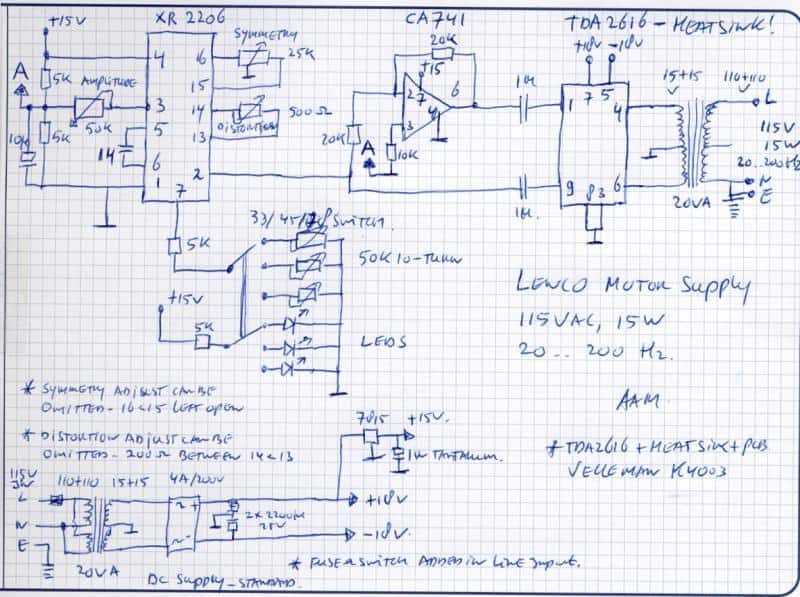 XR 2206
CA741
TDA2616 - HEATSINK!
+15V
SYMMETRY
25K
20K
+18V -18V
A
5K
AMPLITUDE
4
16
15
+15
2
7
6
4
3
1
7 5
4
15+15
V
110+110
V
L
50K
3
14
500Ω
DISTORTION
13
115V
15W
20..200Hz
10K
5K
5
14
6
1
2
7
20K
A
10K
1M
1M.
9
8 3
6
20VA
N
E
5K
33/45/78 SWITCH.
50K 10-TURN
+15V
5K
LEDS
LENCO MOTOR SUPPLY
115VAC, 15W
20 .. 200 Hz.
AAM
* SYMMETRY ADJUST CAN BE
OMITTED - 16 & 15 LEFT OPEN
* DISTORTION ADJUST CAN BE
OMITTED - 200Ω BETWEEN 14 & 13
7815
+15V.
1M TANTALUM.
* TDA2616 + HEATSINK + PCB
VELLEMAN K4003
115V
L
110+110
15+15
4A/200V
N
E
~ +
~ -
2 x 2200M
25V
+18V
-18V.
20VA
DC SUPPLY - STANDARD.
* FUSE & SWITCH ADDED IN LINE INPUT.